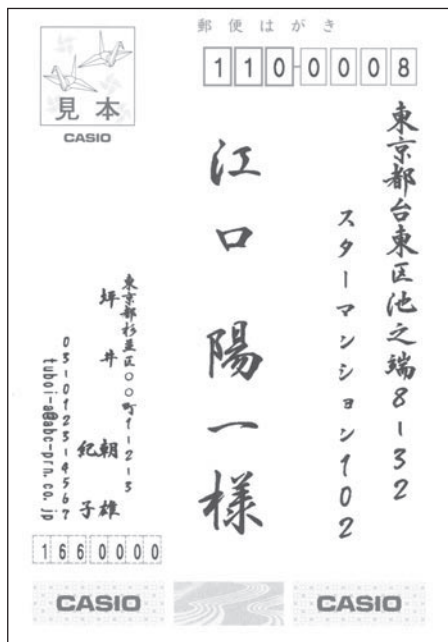 郵便はがき
110-0008
見本
CASIO
東京都台東区池之端8-32
スターマンション102
江口 陽一 様
東京都杉並区〇〇町1-2-3
坪井 朝雄
紀子
03-0123-4567
tuboi-a@abc-prn.co.jp
1660000
CASIO
CASIO